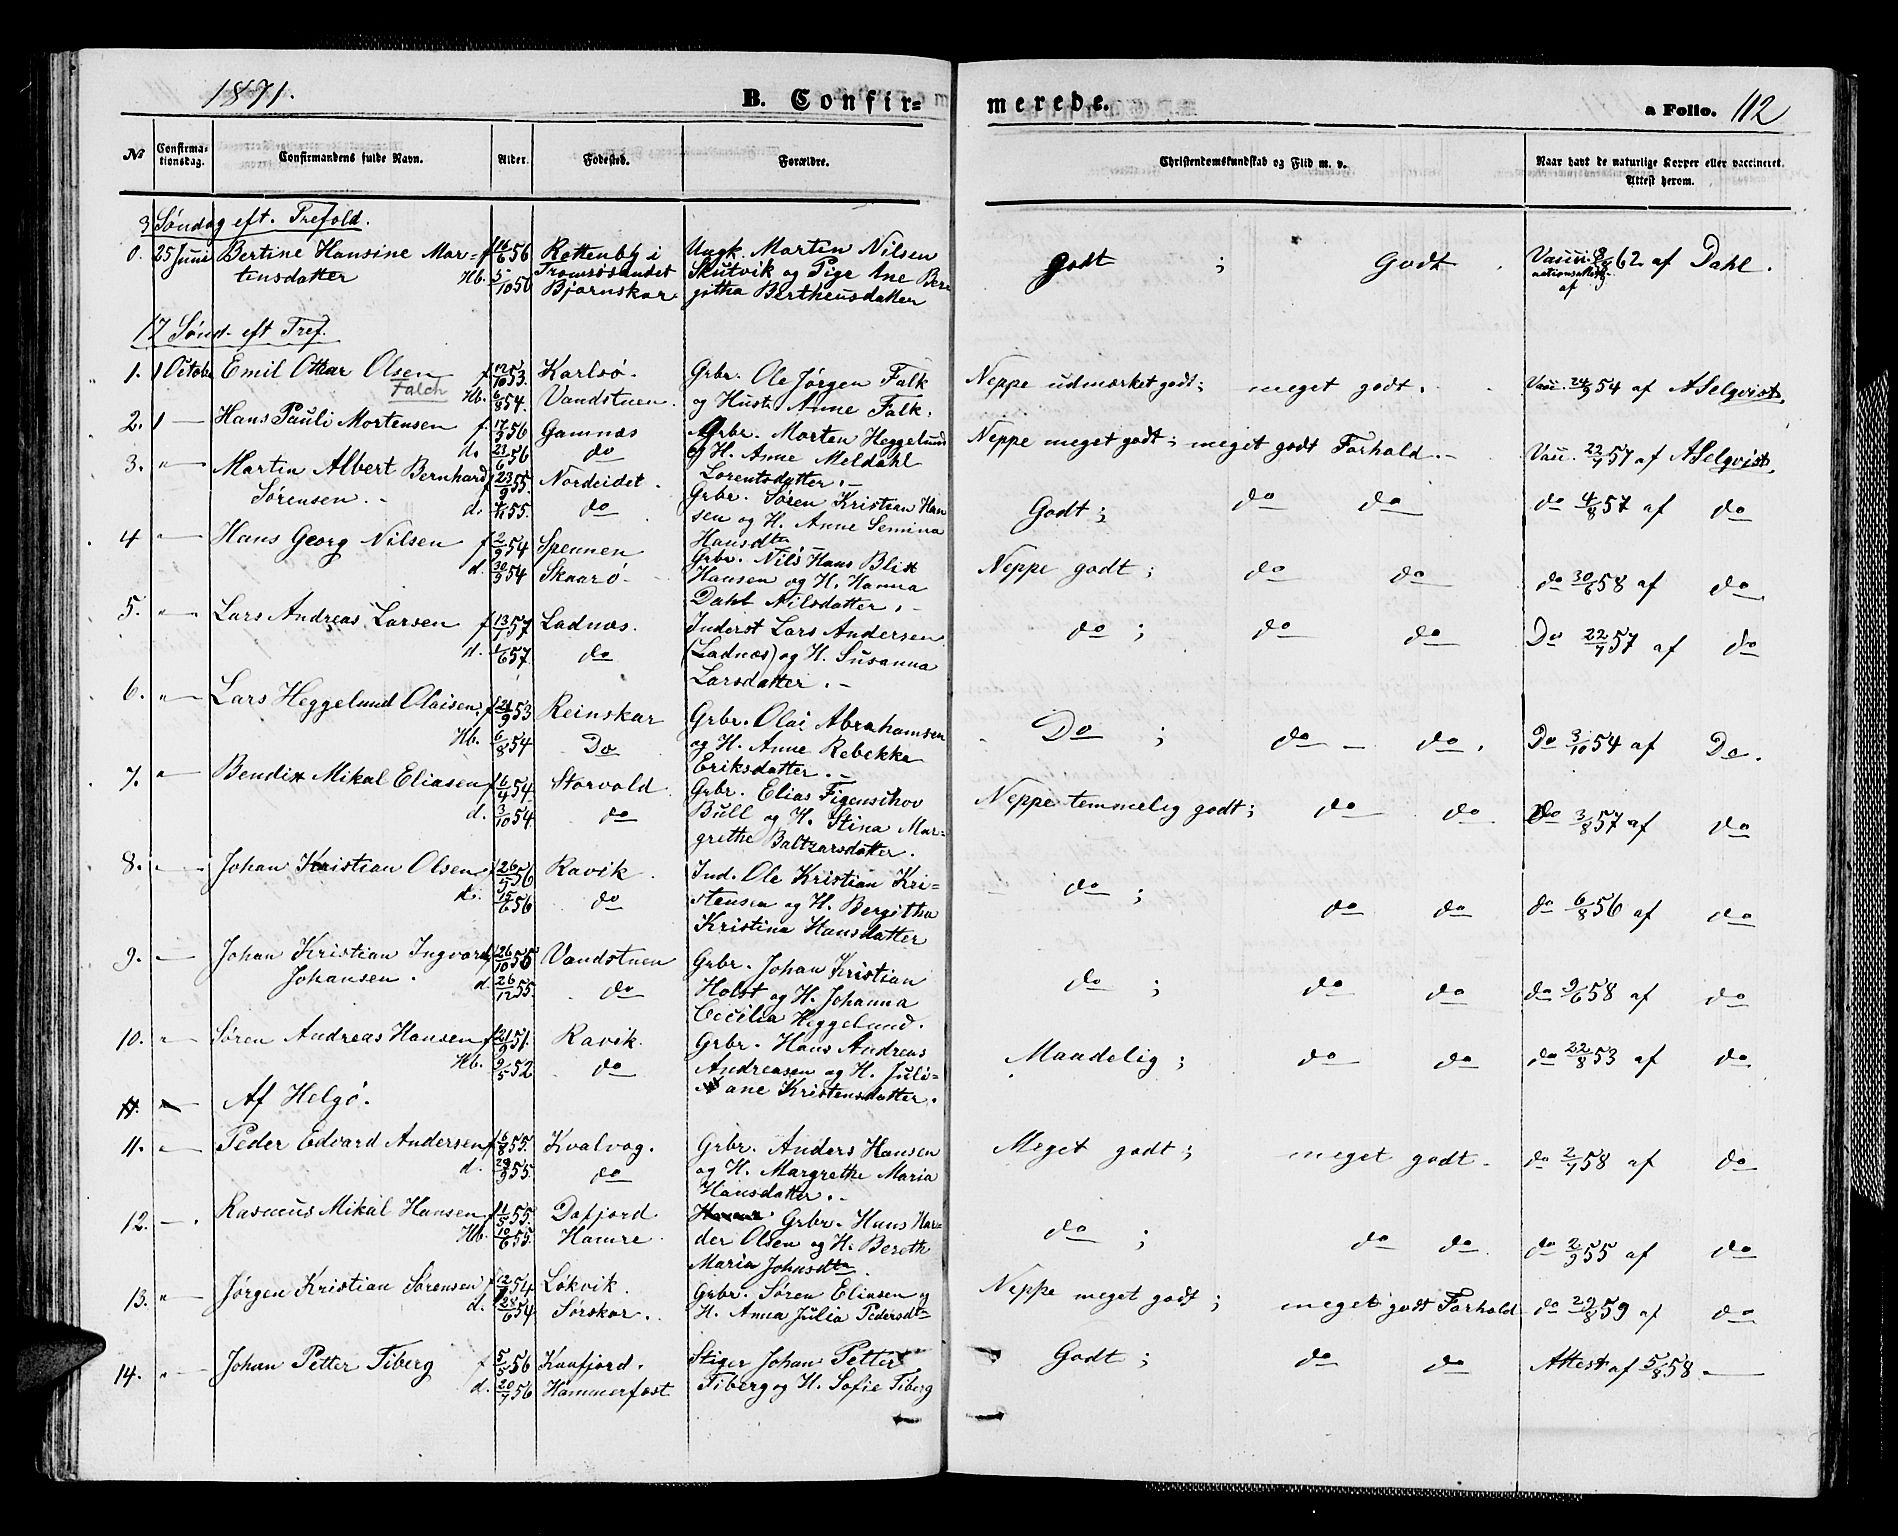 1871.
B. Confir=
merede.
a Folio. 112
No
Confirma-
tionsdag.
Confirmandens fulde Navn.
Alder.
Fødested.
Forældre.
Christendomskundskab og Flid m. v.
Naar havt de naturlige Kopper eller vaccineret.
Attest herom.
3 Søndag eft. Trefold.
0. 25 Juni Bertine Hansine Mar- f 16/6 56 Rottenby i Ungk. Martin Nilsen godt ; Godt. 62 af Dahl.
tensdatter Hb. 5/10 56 Tromsøsundet Skutvik og Pige Ane Ber-
Bjørnskar githa Bertheusdatter
17 Sønd. eft Tref.
1. 1 Octobr Emil Ottar Olsen f 12/10 53. Karlsø. Grbr. Ole Jørgen Falk Neppe udmærket godt; meget godt. Vacc. 24/9 54 af A Selqvist.
Falch Hb. 6/8 54. Vandstuen. og Hust. Anne Falk.
2. 1 — Hans Pauli Mortensen f. 17/3 56 Gamnæs Grbr. Morten Heggelund Neppe meget godt; meget godt Forhold. — Vacc. 22/7 57 af A Selqvist.
d. 23/6 56 do og H. Anne Meldahl
Lorentsdatter. —
3. " — Martin Albert Bernhard f 23/9 55. Nordeidet. Grbr. Søren Kristian Han Godt; do do do 4/8 57 af do
Sørensen. - d. 4/11 55. do sen og H. Anne Semina
Hansdtr.
4 " — Hans Georg Nilsen f 2/9 54 Spennen Grbr. Nils Hans Blix Neppe godt; do do do 30/6 58 af do
d. 30/9 54 Skaarø - Hansen og H. Hanna
Dahl Nilsdatter. -
5. " — Lars Andreas Larsen f 13/1 57 Ladnæs. Inderst Lars Andersen do ; do do Do 22/7 57 af do
d. 1/6 57. do (Ladnæs) og H. Susanna
Larsdatter. -
6. " — Lars Heggelund Olaisen. f 21/9 53 Reinskar Grbr. Olai Abrahamsen Do ; do - do. Do 3/10 54 af Do.
Hb. 6/8 54 Do og H. Anne Rebekka
Eriksdatter. -
7. " — Bendix Mikal Eliasen f 6/4 54. Storvold Grbr. Elias Figenschov Neppe temmelig godt; do do do 3/8 57 af do
d. 3/10 54. do Bull og H. Stina Mar-
grethe Baltzarsdatter.
8. — Johan Kristian Olsen f 26/5 56 Ravik. Ind. Ole Kristian Kri- do ; do do do 6/8 56 af do
d. 15/6 56 do stensen og H. Bergitha
Kristina Hansdatter
9. — Johan Kristian Ingvard f 26/10 55 Vandstuen Grbr. Johan Kristian do ; do do do 9/6 58 af do
Johansen. d. 26/12 55. do Holst og H. Johanna
Cecilia Heggelund.
10. " — Søren Andreas Hansen f 21/9 51. Ravik. Grbr. Hans Andreas Maadelig; do do do 22/8 53 af do
Hb. 9/5 52 do Andreasen og H. Juli-
ane Kristensdatter.
11. — Af Helgø.
11. " — Peder Edvard Andersen f 6/8 55. Kvalvag. Grbr. Anders Hansen Meget godt; meget godt. do 2/7 58 af do
d. 29/9 55. do og H. Margrethe Maria
Hansdatter. -
12. — Rasmus Mikal Hansen f 11/5 55. Dafjord. Grbr. Hans Har- do ; do do do 2/9 55 af do
Hb. 10/6 55. Hamre. der Olsen og H. Bereth
Maria Johnsdtr.
13. " — Jørgen Kristian Sørensen f 12/1 54 Løkvik. Grbr. Søren Eliasen og Neppe meget godt; meget godt Forhold do 29/8 59 af do
d. 28/6 54 Sørskar. H. Anna Julia Pedersdtr
14. " — Johan Petter Tiberg f 5/5 56 Kaafjord. Stiger Johan Petter Godt; do do Attest af 5/8 58. —
d. 20/7 56 Hammerfest Tiberg og H. Sofie Tiberg